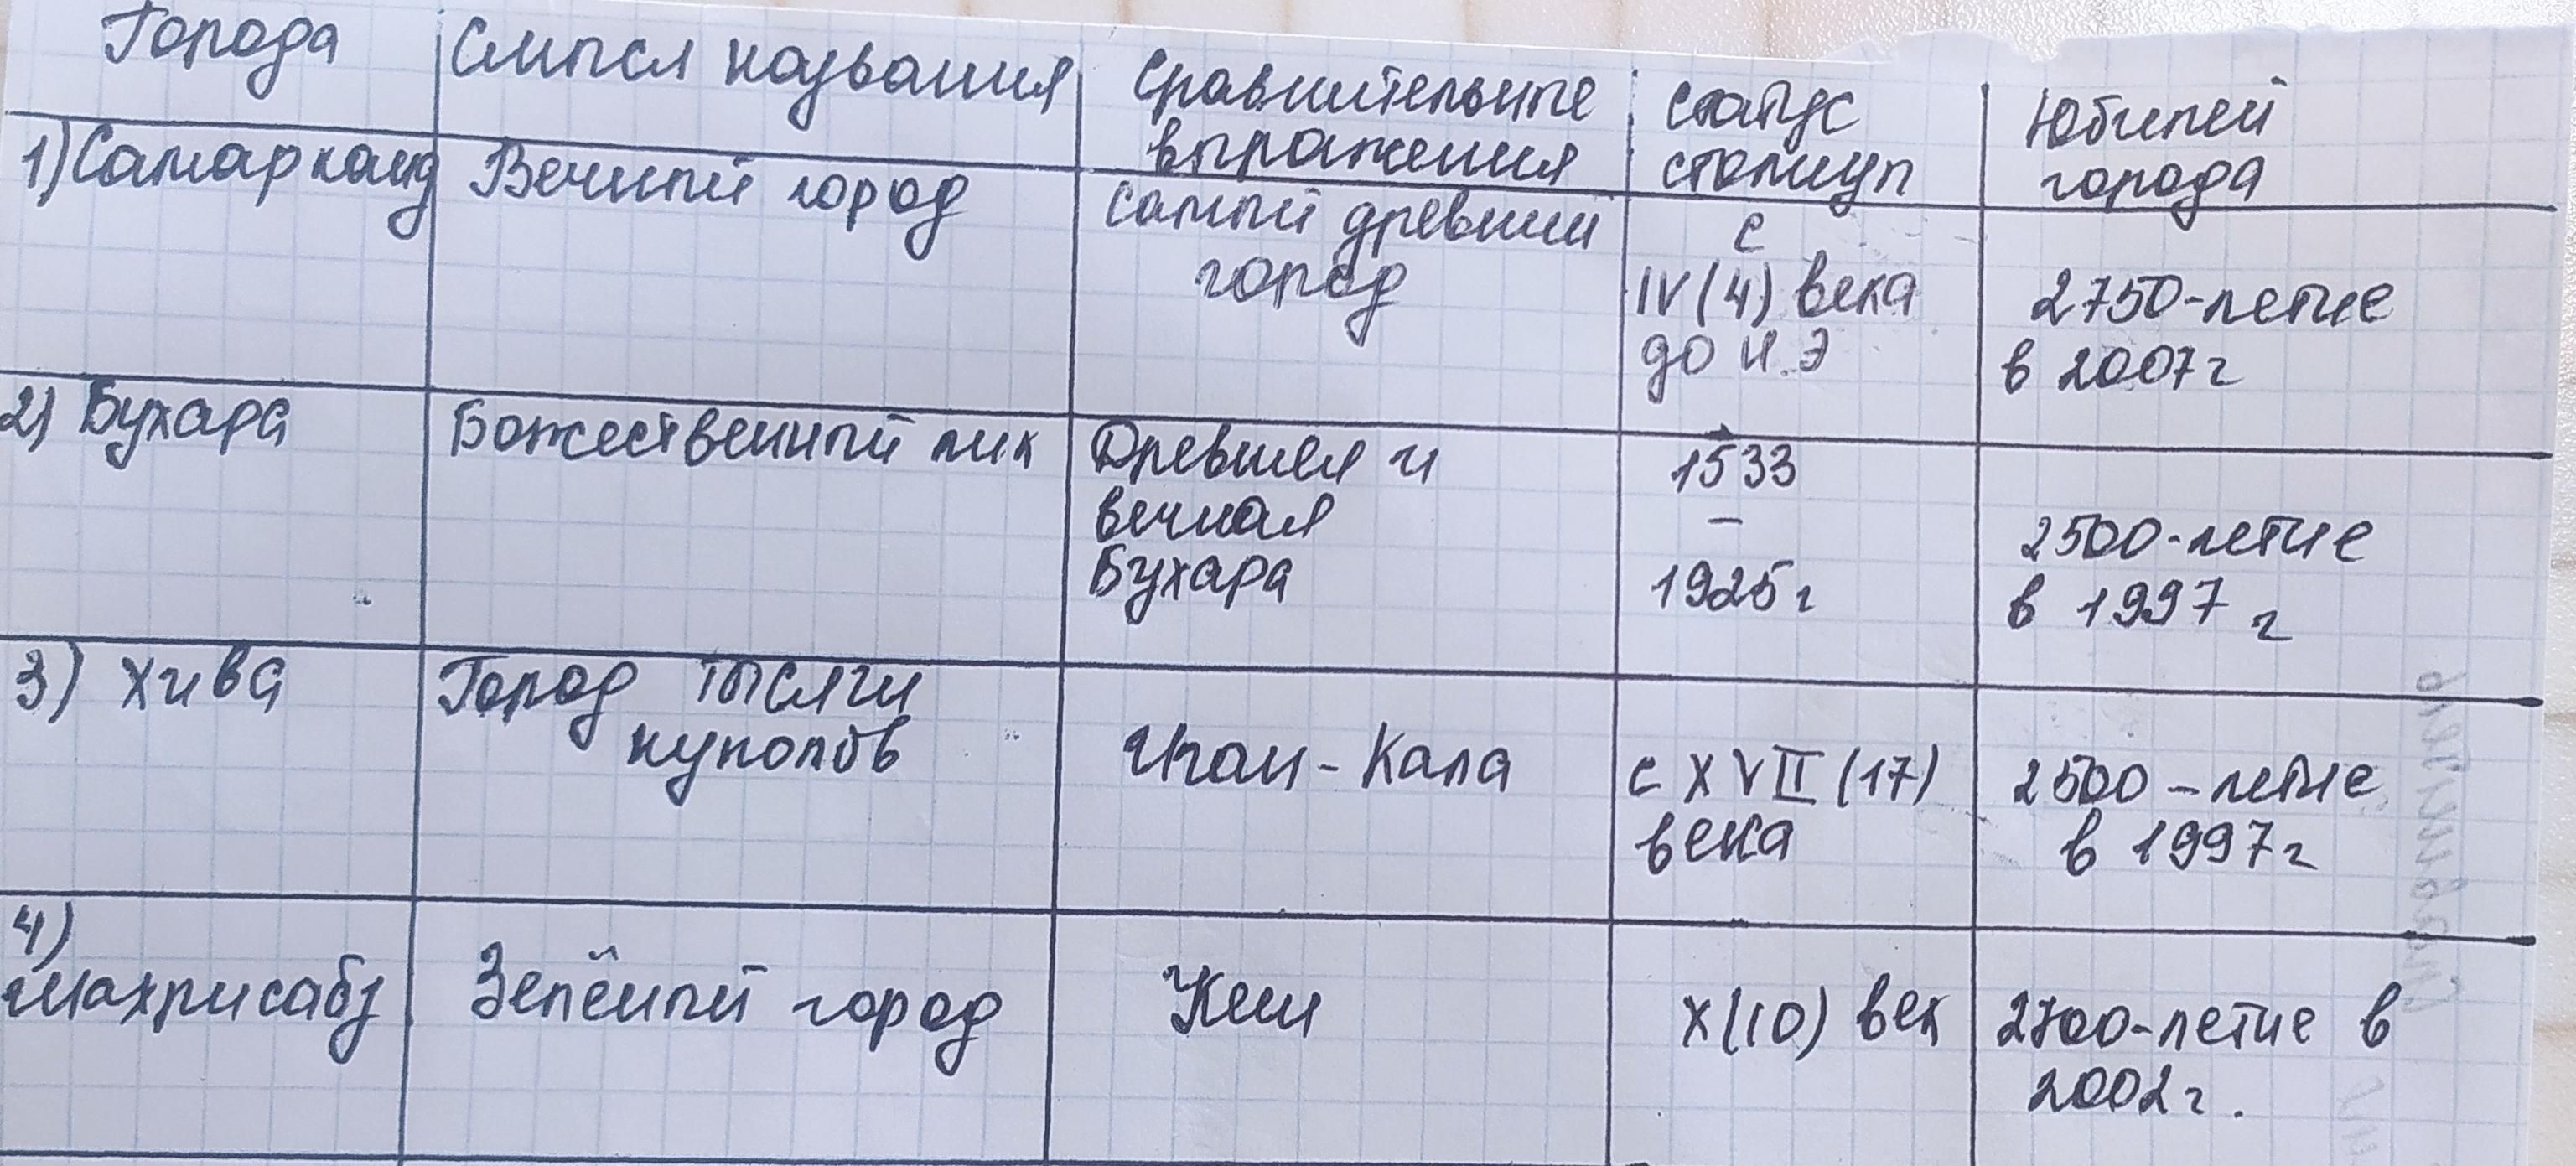 Города
Смысл названия
Сравнительные
выражения
статус
столицы
Юбилей
города
1) Самарканд
Вечный город
самый древний
город
с
IV (4) века
до н.э
2750-летие
в 2007г
2) Бухара
Божественный лик
Древняя и
вечная
Бухара
1533
–
1925г
2500-летие
в 1997 г
3) Хива
Город тысячи
куполов
Ичан-Кала
с XVII (17)
века
2500-летие
в 1997г
4)
Шахрисабз
Зелёный город
Кеш
X(10) век
2700-летие в
2002г.